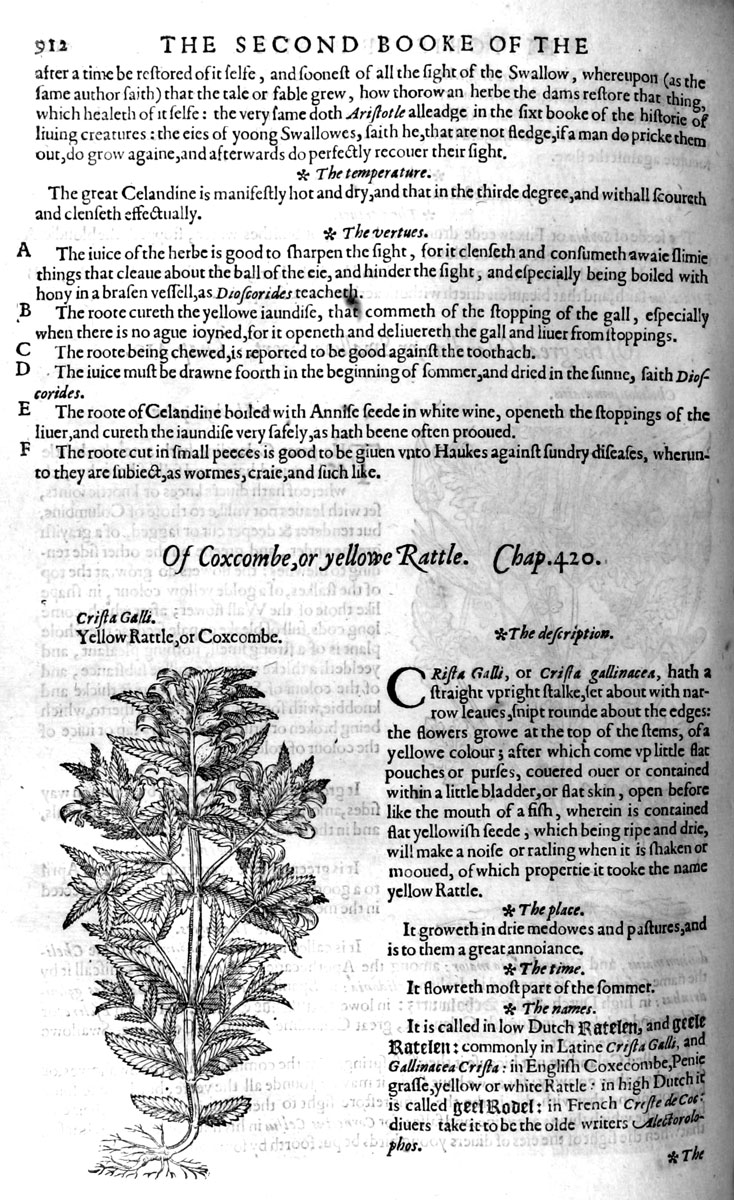 912 THE SECOND BOOKE OF THE
after a time be reſtored of it ſelfe, and ſooneſt of all the ſight of the Swallow, whereupon (as the
ſame author ſaith) that the tale or fable grew, how thorow an herbe the dams reſtore that thing,
which healeth of it ſelfe: the very ſame doth Ariſtotle alleadge in the ſixt booke of the hiſtorie of
liuing creatures: the eies of yoong Swallowes, ſaith he, that are not fledge, if a man do pricke them
out, do grow againe, and afterwards do perfectly recouer their ſight.
* The temperature.
The great Celandine is manifeſtly hot and dry, and that in the thirde degree, and withall ſcoureth
and clenſeth effectually.
* The vertues.
A The iuice of the herbe is good to ſharpen the ſight, for it clenſeth and conſumeth awaie ſlimie
things that cleaue about the ball of the eie, and hinder the ſight, and eſpecially being boiled with
hony in a braſen veſſell, as Dioſcorides teacheth.
B The roote cureth the yellowe iaundiſe, that commeth of the ſtopping of the gall, eſpecially
when there is no ague ioyned, for it openeth and deliuereth the gall and liuer from ſtoppings.
C The roote being chewed, is reported to be good againſt the toothach.
D The iuice muſt be drawne foorth in the beginning of ſommer, and dried in the ſunne, ſaith Dioſ-
corides.
E The roote of Celandine boiled with Anniſe ſeede in white wine, openeth the ſtoppings of the
liuer, and cureth the iaundiſe very ſafely, as hath beene often prooued.
F The roote cut in ſmall peeces is good to be giuen vnto Haukes againſt ſundry diſeaſes, wherun-
to they are ſubiect, as wormes, craie, and ſuch like.
Of Coxcombe, or yellowe Rattle. Chap. 420.
Criſta Galli.
Yellow Rattle, or Coxcombe.
* The deſcription.
CRiſta Galli, or Criſta gallinacea, hath a
ſtraight vpright ſtalke, ſet about with nar-
row leaues, ſnipt rounde about the edges:
the flowers growe at the top of the ſtems, of a
yellowe colour; after which come vp little flat
pouches or purſes, couered ouer or contained
within a little bladder, or flat skin, open before
like the mouth of a fiſh, wherein is contained
flat yellowiſh ſeede, which being ripe and drie,
will make a noiſe or ratling when it is ſhaken or
mooued, of which propertie it tooke the name
yellow Rattle.
* The place.
It groweth in drie medowes and paſtures, and
is to them a great annoiance.
* The time.
It flowreth moſt part of the ſommer.
* The names.
It is called in low Dutch Ratelen, and geele
Ratelen: commonly in Latine Criſta Galli, and
Gallinacea Criſta: in Engliſh Coxecombe, Penie
graſſe, yellow or white Rattle: in high Dutch it
is called geel Rodel: in French Creſte de Coc:
diuers take it to be the olde writers Alectorolo-
phos.
* The